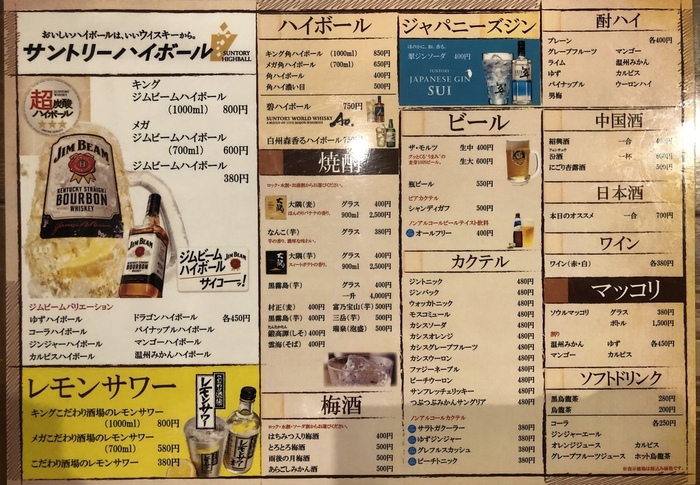 おいしいハイボールは、いいウイスキーから。
サントリーハイボール
SUNTORY
HIGHBALL
超炭酸
ハイボール
JIM BEAM
KENTUCKY STRAIGHT
BOURBON
WHISKEY
キング
ジムビームハイボール
(1000ml) 800円
メガ
ジムビームハイボール
(700ml) 600円
ジムビームハイボール
380円
JIM BEAM
ジムビーム
ハイボール
サイコーっ!
ジムビームバリエーション
ゆずハイボール
コーラハイボール
ジンジャーハイボール
カルピスハイボール
ドラゴンハイボール 各450円
パイナップルハイボール
マンゴーハイボール
温州みかんハイボール
レモンサワー
キングこだわり酒場のレモンサワー
(1000ml) 800円
メガこだわり酒場のレモンサワー
(700ml) 580円
こだわり酒場のレモンサワー 380円
レモンサワー
ハイボール
キング角ハイボール (1000ml) 850円
メガ角ハイボール (700ml) 650円
角ハイボール 400円
角ハイ濃い目 500円
碧ハイボール 750円
SUNTORY WORLD WHISKY
Ao
白州森香るハイボール
焼酎
ロック・水割・お湯割からお選びください。
大隅(麦) グラス 400円
ほんのりバナナの香り。 900ml 2,500円
なんこ(芋) グラス 380円
芋の香り、濃厚な味わい。
大隅(芋) グラス 400円
スィートポテトの香り。 900ml 2,500円
黒霧島(芋) グラス 400円
一升 4,000円
村正(麦) 400円 富乃宝山(芋) 500円
黒霧島(芋) 400円 三岳(芋) 500円
鍛高譚(しそ) 400円 瑞泉(泡盛) 500円
雲海(そば) 400円
梅酒
ロック・水割・ソーダ割からお選びください。
はちみつ入り梅酒 400円
とろとろ梅酒 500円
雨後の月梅酒 500円
あらごしみかん酒 500円
ジャパニーズジン
ほのかに、和、香る。
翠ジンソーダ 400円
SUNTORY
JAPANESE GIN
SUI
ビール
ザ・モルツ 生中 400円
生大 600円
瓶ビール 550円
ビアカクテル
シャンディガフ 500円
ノンアルコールビールテイスト飲料
オールフリー 400円
カクテル
ジントニック 480円
ジンバック 480円
ウォッカトニック 480円
モスコミュール 480円
カシスソーダ 480円
カシスオレンジ 480円
カシスグレープフルーツ 480円
カシスウーロン 480円
ファジーネーブル 480円
ピーチウーロン 480円
サンフレッチェリッキー 480円
つぶつぶみかんサングリア 480円
ノンアルコールカクテル
サラトガクーラー 380円
ゆずジンジャー 380円
グレフルスカッシュ 380円
ピーチトニック 380円
酎ハイ
プレーン 各400円
グレープフルーツ マンゴー
ライム 温州みかん
ゆず カルピス
パイナップル ウーロンハイ
男梅
中国酒
紹興酒 一合
汾酒 一杯
にごり杏露酒
日本酒
本日のオススメ 一合 700円
ワイン
ワイン(赤・白) 各380円
マッコリ
ソウルマッコリ グラス 380円
ボトル 1,500円
割り
温州みかん ゆず 各450円
マンゴー カルピス
ソフトドリンク
黒烏龍茶 280円
烏龍茶 200円
コーラ 各250円
ジンジャーエール
オレンジジュース カルピス
グレープフルーツジュース ホット烏龍茶
※表示価格は税込み価格です。